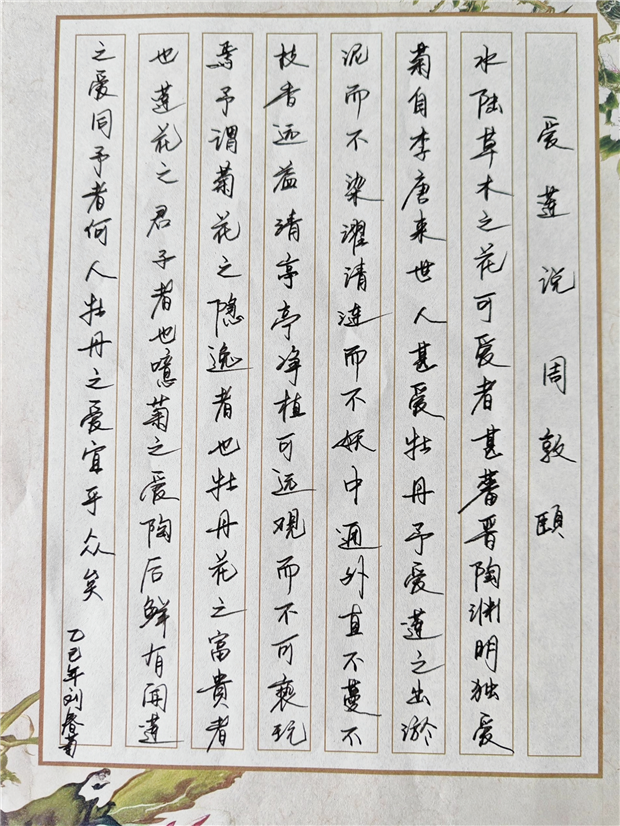 爱莲说 周敦颐
水陆草木之花可爱者甚蕃晋陶渊明独爱
菊自李唐来世人甚爱牡丹予爱莲之出淤
泥而不染濯清涟而不妖中通外直不蔓不
枝香远益清亭亭净植可远观而不可亵玩
焉予谓菊花之隐逸者也牡丹花之富貴者
也莲花之君子者也噫菊之爱陶后鲜有闻莲
之爱同予者何人牡丹之爱宜乎众矣
乙巳年刘春菊